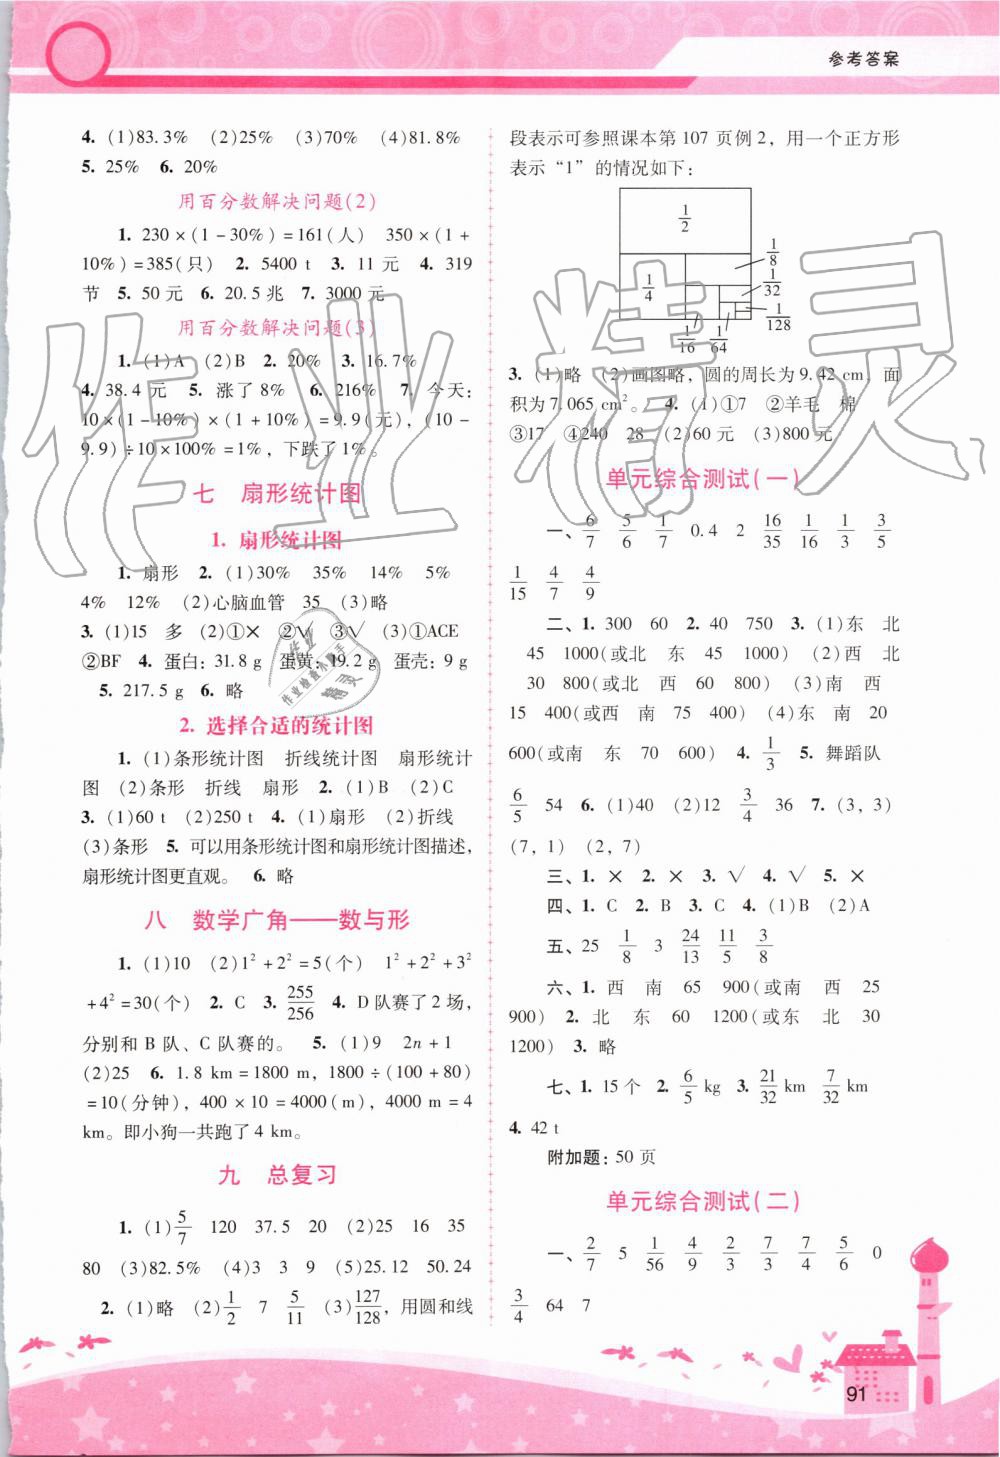 参考答案
4. (1)83.3% (2)25% (3)70% (4)81.8%
5. 25% 6. 20%
用百分数解决问题(2)
1. 230×(1-30%)=161(人) 350×(1+
10%)=385(只) 2. 5400 t 3. 11 元 4. 319
节 5. 50 元 6. 20.5 兆 7. 3000 元
用百分数解决问题(3)
1. (1)A (2)B 2. 20% 3. 16.7%
4. 38.4 元 5. 涨了 8% 6. 216% 7. 今天:
10×(1-10%)×(1+10%)=9.9(元), (10-
9.9)÷10×100%=1%, 下跌了 1%。
七 扇形统计图
1. 扇形统计图
1. 扇形 2. (1)30% 35% 14% 5%
4% 12% (2)心脑血管 35 (3)略
3. (1)15 多 (2)①× ②√ ③√ (3)①ACE
②BF 4. 蛋白: 31.8 g 蛋黄: 19.2 g 蛋壳: 9 g
5. 217.5 g 6. 略
2. 选择合适的统计图
1. (1)条形统计图 折线统计图 扇形统计
图 (2)条形 折线 扇形 2. (1)B (2)C
3. (1)60 t (2)250 t 4. (1)扇形 (2)折线
(3)条形 5. 可以用条形统计图和扇形统计图描述,
扇形统计图更直观。 6. 略
八 数学广角——数与形
1. (1)10 (2)1²+2²=5(个) 1²+2²+3²
+4²=30(个) 2. C 3. 255/256 4. D 队赛了 2 场,
分别和 B 队、C 队赛的。 5. (1)9 2n+1
(2)25 6. 1.8 km=1800 m, 1800÷(100+80)
=10(分钟), 400×10=4000(m), 4000 m=4
km。即小狗一共跑了 4 km。
九 总复习
1. (1)5/7 120 37.5 20 (2)25 16 35
80 (3)82.5% (4)3 3 9 (5)25.12 50.24
2. (1)略 (2)1/2 7 5/11 (3)127/128, 用圆和线
段表示可参照课本第 107 页例 2, 用一个正方形
表示“1”的情况如下:
1/2
1/8
1/4
1/32
1/128
1/16 1/64
3. (1)略 (2)画图略, 圆的周长为 9.42 cm, 面
积为 7.065 cm²。 4. (1)①7 ②羊毛 棉
③17 ④240 28 (2)60 元 (3)800 元
单元综合测试(一)
一、6/7 5/6 1/7 0.4 2 16/35 1/16 1/3 3/5
1/15 4/7 4/9
二、1. 300 60 2. 40 750 3. (1)东 北
45 1000(或北 东 45 1000) (2)西 北
30 800(或北 西 60 800) (3)南 西
15 400(或西 南 75 400) (4)东 南 20
600(或南 东 70 600) 4. 1/3 5. 舞蹈队
6/5 54 6. (1)40 (2)12 3/4 36 7. (3, 3)
(7, 1) (2, 7)
三、1. × 2. × 3. √ 4. √ 5. ×
四、1. C 2. B 3. C 4. (1)B (2)A
五、25 1/8 3 24/13 11/5 3/8
六、1. 西 南 65 900(或南 西 25
900) 2. 北 东 60 1200(或东 北 30
1200) 3. 略
七、1. 15 个 2. 6/5 kg 3. 21/32 km 7/32 km
4. 42 t
附加题: 50 页
单元综合测试(二)
一、2/7 5 1/56 4/9 2/3 7/3 7/4 5/6 0
3/4 64 7
91
作业精灵
作业
作业检查小助手
精灵